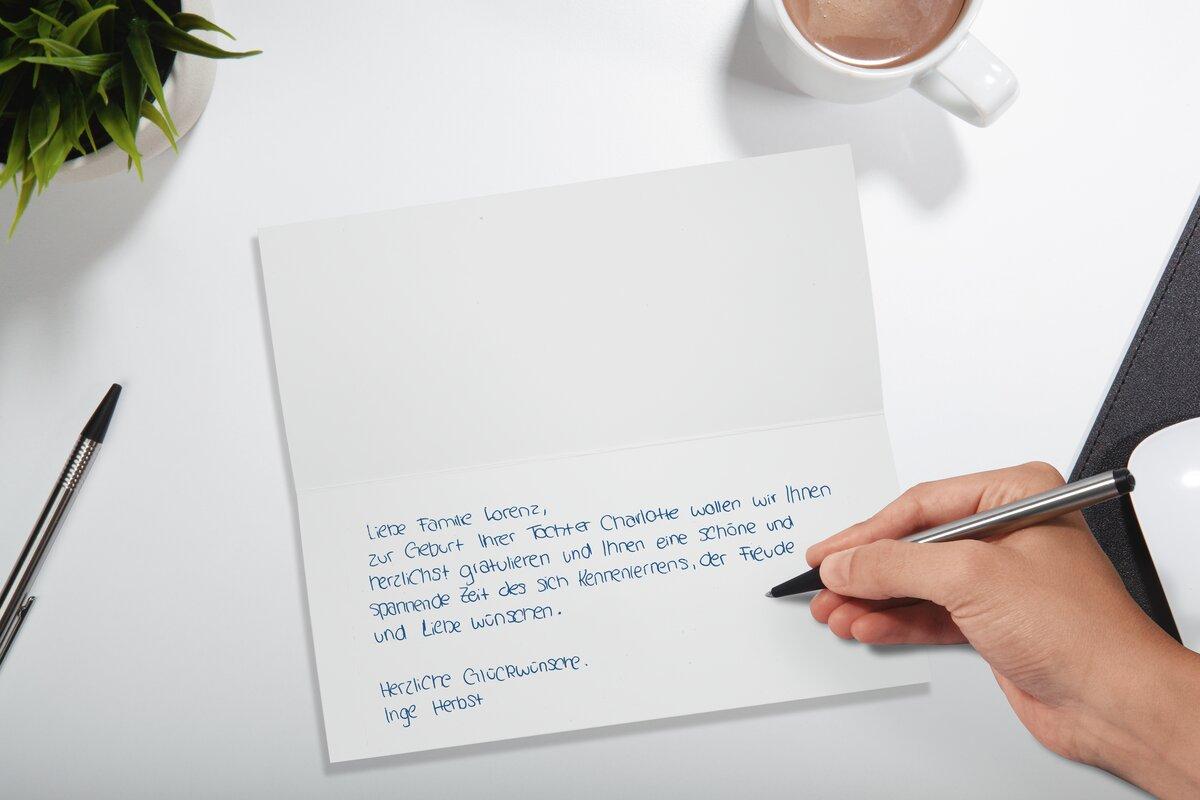 Liebe Familie Lorenz,
zur Geburt Ihrer Tochter Charlotte wollen wir Ihnen
herzlichst gratulieren und Ihnen eine schöne und
spannende Zeit des sich Kennenlernens, der Freude
und Liebe wünschen.
Herzliche Glückwünsche.
Inge Herbst